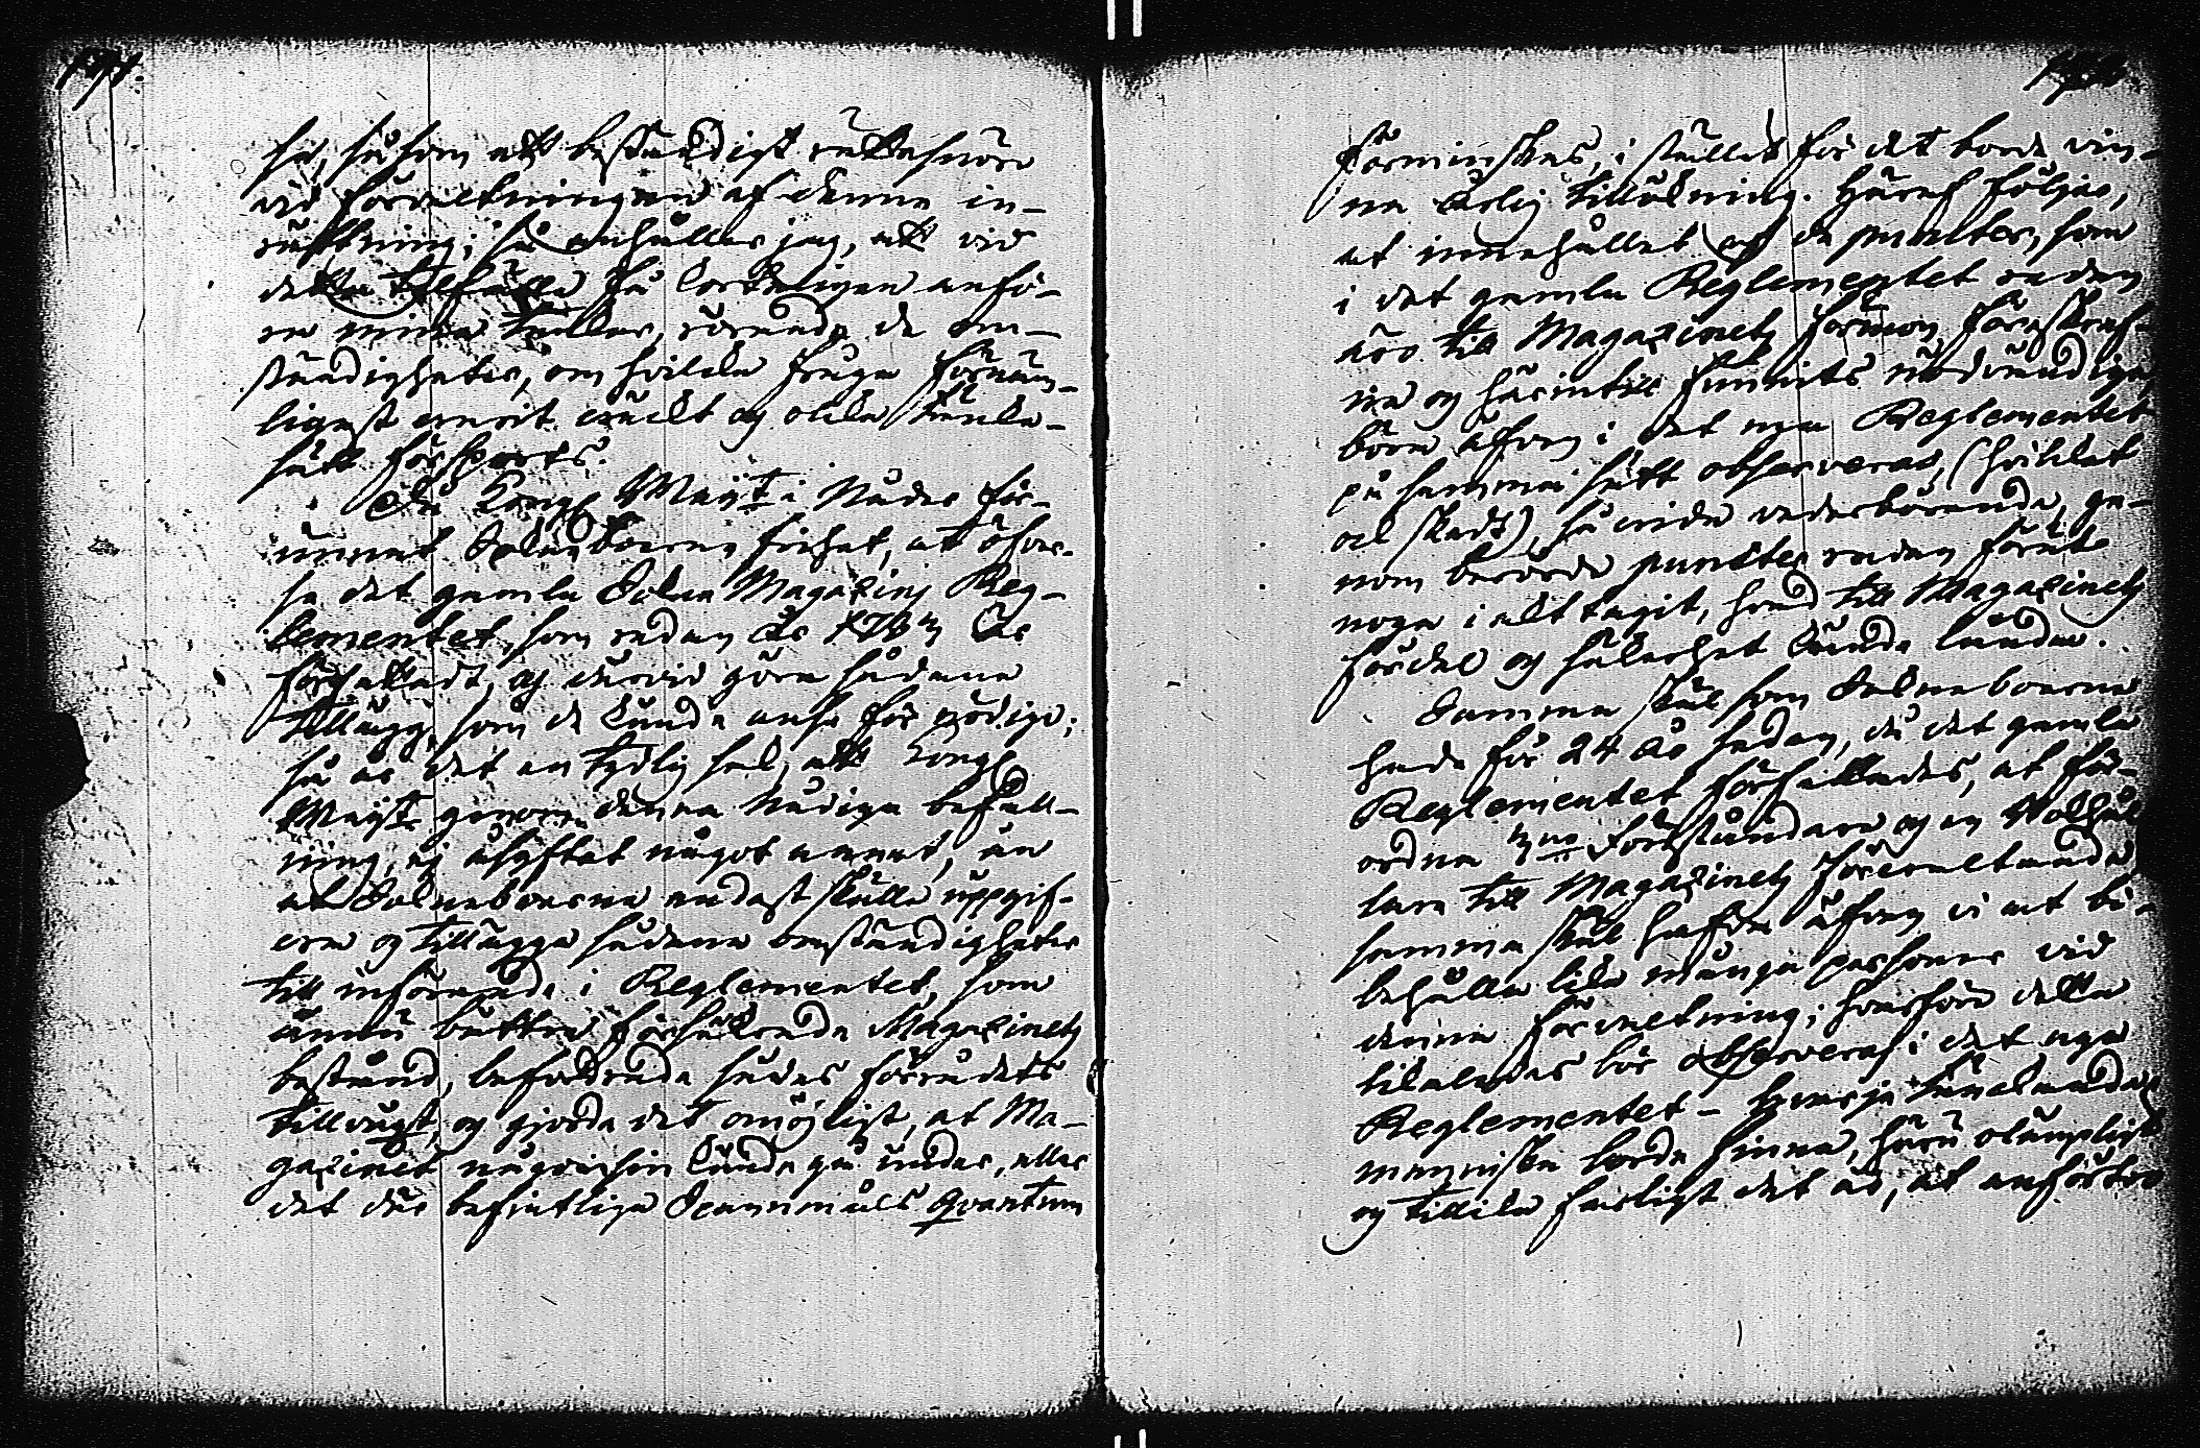 så, såsom ett beständigt rättesnöre
vid förvaltningen af denna in-
rättning; så anhåller jag, att vid
detta tilfälle få korteligen anfö-
ra mina tankar, rörande de om-
ständigheter, om hvilka fråga förnäm-
ligast varit väckt och olika tänke-
sätt försports.
Då Kongl Majt i Nåder för-
unnat Solnaboerne frihet, at öfver-
se det gamla Solna Magazins Reg-
lementet, som redan är
författadt, och dervid göra sådana
tillägg, som de kunde anse för nödige;
så är det en tydlig sak, att Kongl
Majt genom denna Nådiga befall-
ning, ej åsyftat något annat, än
at Solnaboerne endast skulle uppgif-
va och tillägga sådana omständigheter
till införande i Reglementet, som
ännu bättre försäkrade Magazinets
bestånd, befordrade sädes förrådets
tillväxt, och gjorde det omöjligt, at Ma-
gazinet någonsin kunde gå under, eller
det der befintliga Spannmåls Qvantum
förminskas, i stället för det borde vin-
na årlig tillökning. Häraf följer,
at innehållet af de puncter, som
i det gamla Reglementet redan
äro till Magazinets förmon föreskref-
na och härintill funnits nödvändiga,
böra äfven i det nya Reglementet
på samma sätt observeras, (hvilket
ock skedt), så vida vederbörande, ge-
nom berörde puncter redan förut
noga i akt tagit, hvad till Magazinets
fördel och säkerhet kunde lända.
Samma skäl som Solnaboerne
hade för 24 år sedan, då det gamla
Reglementet författades, at för-
ordna Föreståndare och en
till Magazinets förvaltande
samma skäl hafva äfven vi at bi-
behålla lika många personer vid
denna förvaltning; hvarföre detta
likaledes bör observeras i det nya
Reglementet - Hvarje tänkande
menniska borde finna, huru olämpligt
och tillika farligt det är, at anförtro